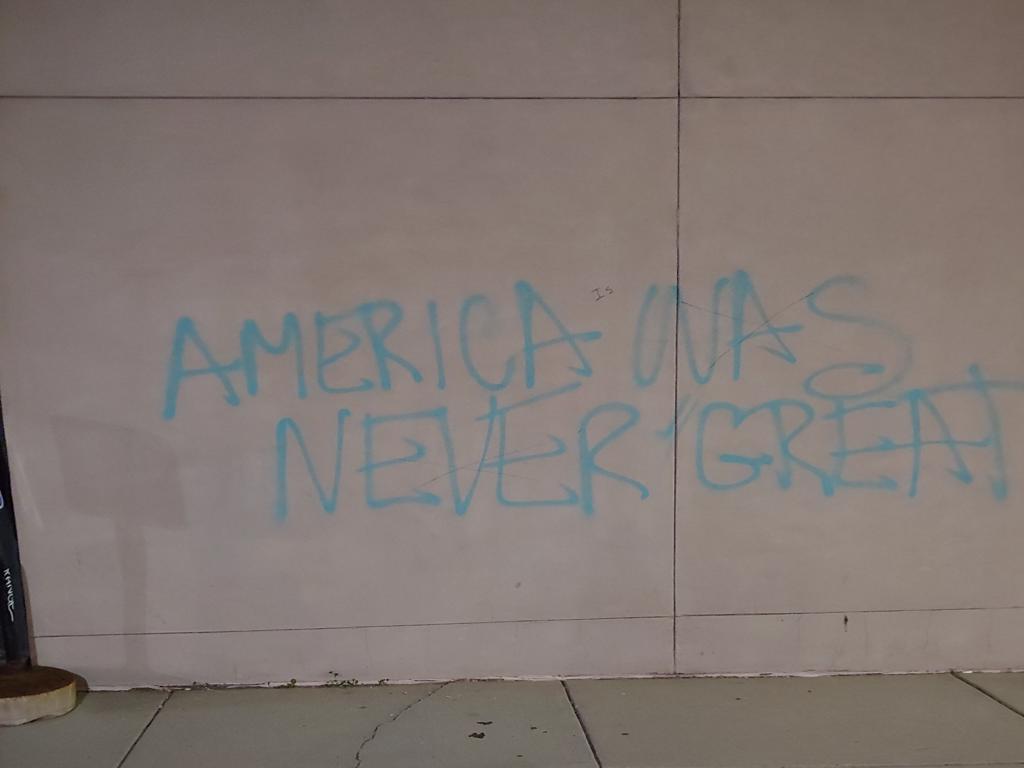 Is
AMERICA WAS
NEVER GREAT